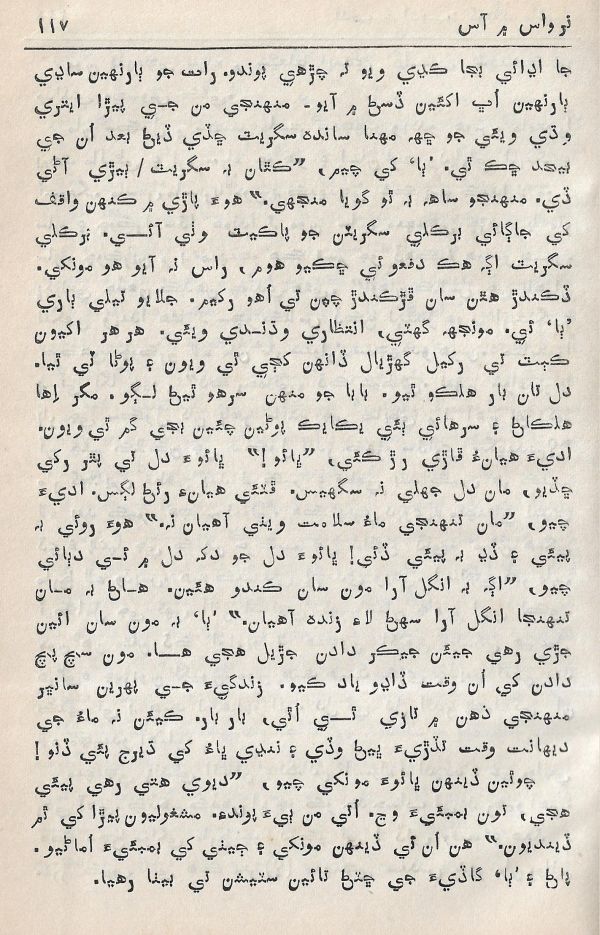 نرواس ۾ آس ١١٧
جا اڍائي بجا کڏي ويو نه چڙهي پوندو. رات جو ٻارنهين ساڍي
ٻارنهين اُڀ اکئين ڏسڻ ۾ آيو۔ منهنجي من جي پيڙا ايتري
وڌي ويئي جو ڇهہ مهنا سانده سگريٽ ڇڏي ڏيڻ بعد اُن جي
بيحد ڇڪ ٿي. ’ٻا‘ کي چيم، ”ڪٿان به سگريٽ/ٻيڙي آڻي
ڏي. منهنجو ساهہ به ٿو گويا منجهي.“ هوءَ پاڙي ۾ ڪنهن واقف
کي جاڳائي برڪلي سگريٽن جو پاڪيٽ وٺي آئي. برڪلي
سگريٽ اڳہ هڪ دفعو ئي ڇڪيو هوم، راس نہ آيو هو مونکي.
ڏڪندڙ هٿن سان ڦڙڪندڙ چپن تي اُهو رکيم. جلايو تيلي ٻاري
’ٻا‘ ئي. مونجهہ گهٽي، انتظاري وڌندي ويئي. هر هر اکيون
ڪٻٽ تي رکيل گهڙيال ڏانهن کڄي ٿي ويون ۽ پوڻا ٽي ٿيا.
دل تان بار هلڪو ٿيو. بابا جو منهن سرهو ٿيڻ لڳو. مگر اِها
هلڪاڻ ۽ سرهائي ٻئي يڪايڪ پوڻين چئين بجي گم ٿي ويون.
اديءَ هيانءُ ڦاڙي رڙ ڪئي، ”ڀائو!“ ڀائوءَ دل تي پٿر رکي
ڇڏيو، مان دل جهلي نہ سگهيس. ڦٽئي هيانءَ رئڻ لڳس. اديءَ
چيو، ”مان تنهنجي ماءُ سلامت ويٺي آهيان نہ.“ هوءَ روئي به
پيئي ۽ ڏڍ به پيئي ڏئي! ڀائوءَ دل جو دک دل ۾ ئي دٻائي
چيو، ”اڳہ به انگل آرا مون سان ڪندو هئين. هاڻ به مان
تنهنجا انگل آرا سهڻ لاءِ زنده آهيان.“ ’ٻا‘ به مون سان ائين
جڙي رهي جيئن جيڪر دادن جڙيل هجي ها. مون سچ پچ
دادن کي اُن وقت ڏاڍو ياد ڪيو. زندگيءَ جي پهرين سانڀر
منهنجي ذهن ۾ تازي ٿي اُٿي، بار بار. ڪيئن نہ ماءُ جي
ديهانت وقت نڌڙيءَ ڀيڻ وڏي ۽ ننڍي ڀاءُ کي ڌيرج پئي ڏنو!
چوٿين ڏينهن ڀائوءَ مونکي چيو، ”ديوي هتي رهي پيئي
هجي، تون بمبئيءَ وڃ. اُتي من ٻيءَ پوندءِ. مشغوليون پيڙا کي ٿم
ڏينديون.“ هن اُن ئي ڏينهن مونکي ۽ جيني کي بمبئيءَ اُماڻيو.
پاڻ ۽ ’ٻا‘ گاڏيءَ جي ڇٽڻ تائين سٽيشن تي بيٺا رهيا.